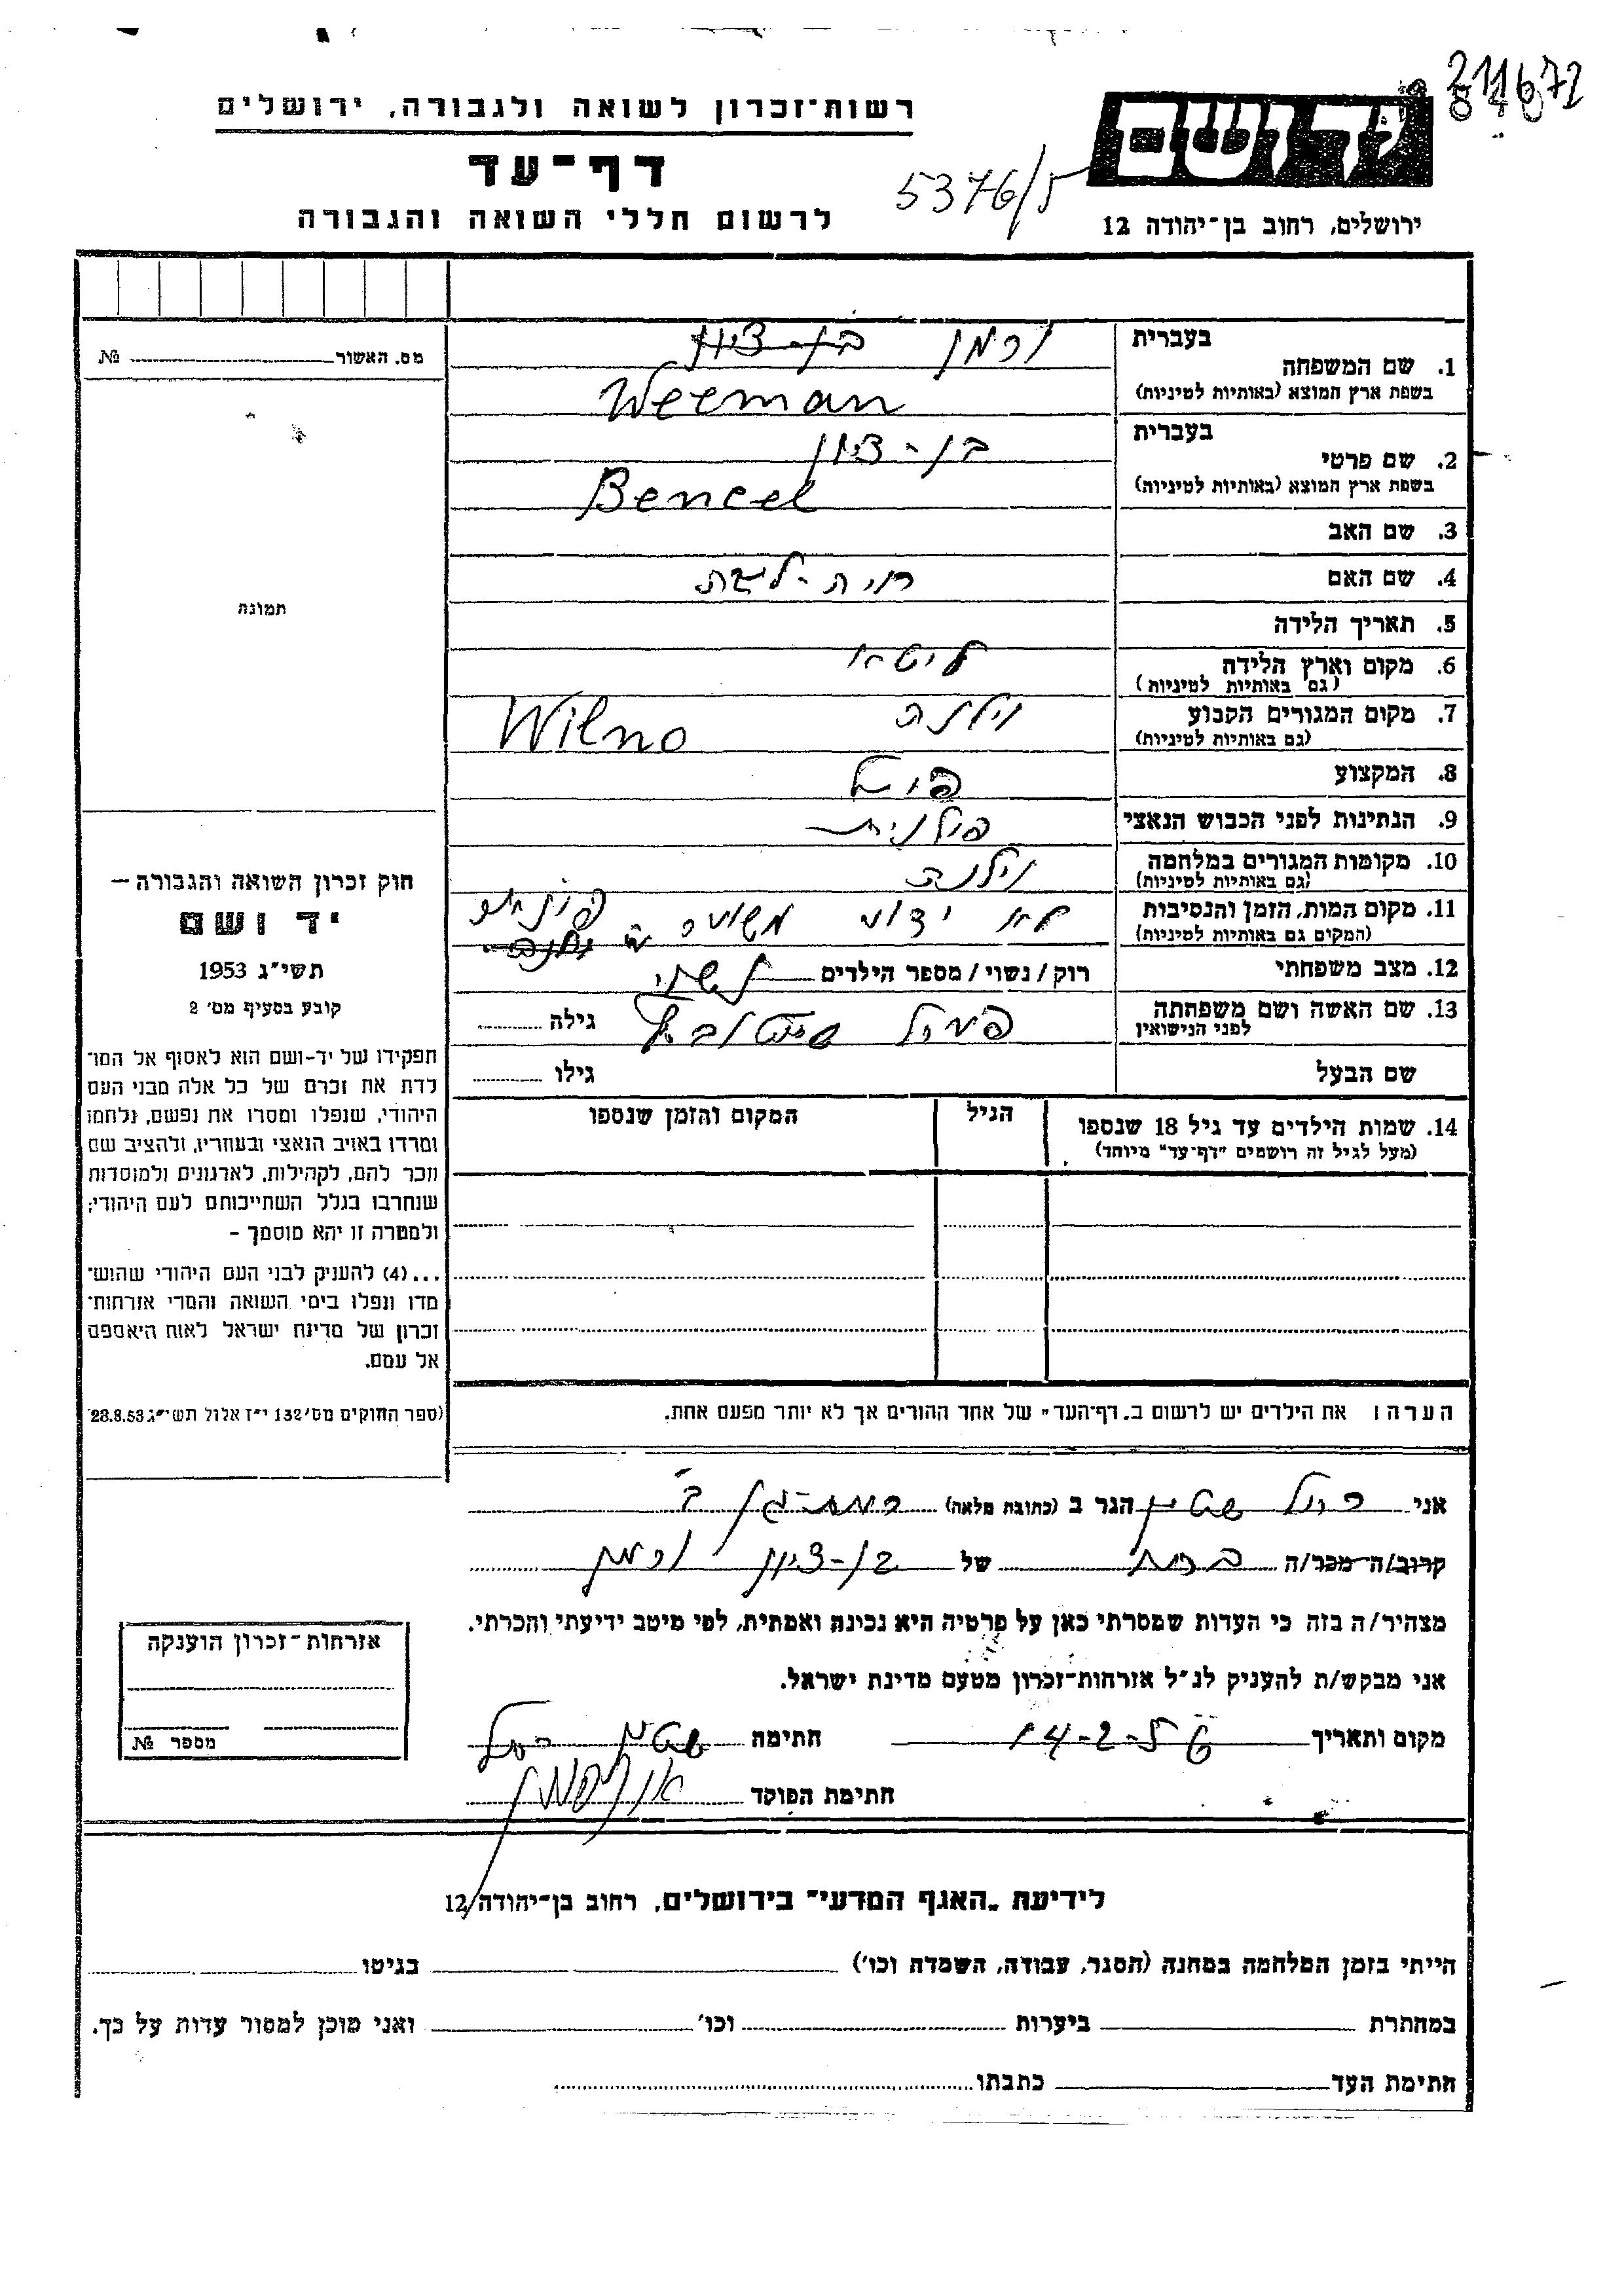 211672
רשות-זכרון לשואה ולגבורה, ירושלים
יד ושם
דף-עד
5376/5
לרשום חללי השואה והגבורה
ירושלים, רחוב בן-יהודה 12
בעברית
1. שם המשפחה
וכמן בן-ציון
(בשפת ארץ המוצא (באותיות לטיניות
Weeman
בעברית
2. שם פרטי
בן-ציון
(בשפת ארץ המוצא (באותיות לטיניות
Bencel
3. שם האב
4. שם האם
5. תאריך הלידה
6. מקום וארץ הלידה
(גם באותיות לטיניות)
ליטא
7. מקום המגורים הקבוע
(גם באותיות לטיניות)
וילנה Wilno
8. המקצוע
9. הנתינות לפני הכבוש הנאצי
פולנית
10. מקומות המגורים במלחמה
(גם באותיות לטיניות)
וילנה
11. מקום המות, הזמן והנסיבות
(המקום גם באותיות לטיניות)
לא ידוע
12. מצב משפחתי
רוק/נשוי/מספר הילדים
13. שם האשה ושם משפחתה
לפני הנישואין
גילה
שם הבעל
גילו
14. שמות הילדים עד גיל 18 שנספו
(מעל לגיל זה רושמים "דף-עד" מיוחד)
הגיל
המקום והזמן שנספו
הערה: את הילדים יש לרשום ב"דף-העד" של אחד ההורים אך לא יותר מפעם אחת.
מס. האשור №
תמונה
חוק זכרון השואה והגבורה –
יד ושם
תשי"ג 1953
קובע בסעיף מס' 2
תפקידו של יד-ושם הוא לאסוף אל המו־
לדת את זכרם של כל אלה מבני העם
היהודי, שנפלו ומסרו את נפשם, נלחמו
ומרדו באויב הנאצי ובעוזריו, ולהציב שם
וזכר להם, לקהילות, לארגונים ולמוסדות
שנחרבו בגלל השתייכותם לעם היהודי;
ולמטרה זו יהא מוסמך –
...(4) להעניק לבני העם היהודי שהוש־
מדו ונפלו בימי השואה והמרי אזרחות־
זכרון של מדינת ישראל לאות היאספם
אל עמם.
(ספר החוקים מס' 132 י"ז אלול תשי"ג 28.8.53)
אני הגר ב (כתובת מלאה)
קרוב/ה מכר/ה של בן-ציון וכמן
מצהיר/ה בזה כי העדות שמסרתי כאן על פרטיה היא נכונה ואמתית, לפי מיטב ידיעתי והכרתי.
אני מבקש/ת להעניק לנ"ל אזרחות-זכרון מטעם מדינת ישראל.
מקום ותאריך 14-2-56 חתימה
חתימת הפוקד
אזרחות-זכרון הוענקה
מספר №
לידיעת "האגף המדעי" בירושלים, רחוב בן-יהודה 12
הייתי בזמן המלחמה במחנה (הסגר, עבודה, השמדה וכו') בגיטו
במחתרת ביערות וכו' ואני מוכן למסור עדות על כך.
חתימת העד כתבתו